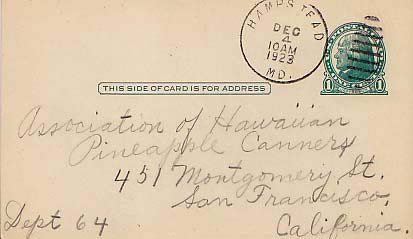 HAMPSTEAD
DEC
4
10AM
1923
MD.
THIS SIDE OF CARD IS FOR ADDRESS
1 1
Association of Hawaiian
Pineapple Canners
451 Montgomery St.
San Francisco,
Dept 64 California.